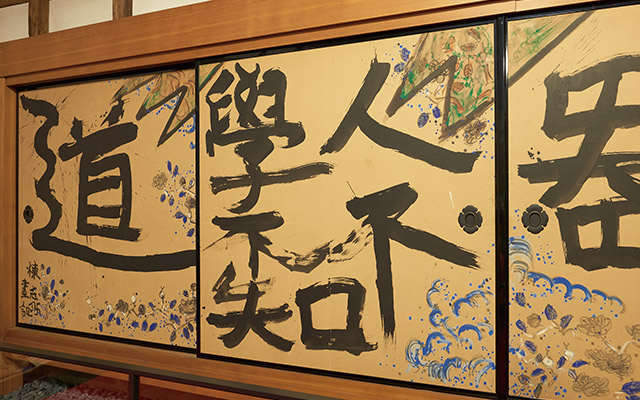 器
人不
學不知
道